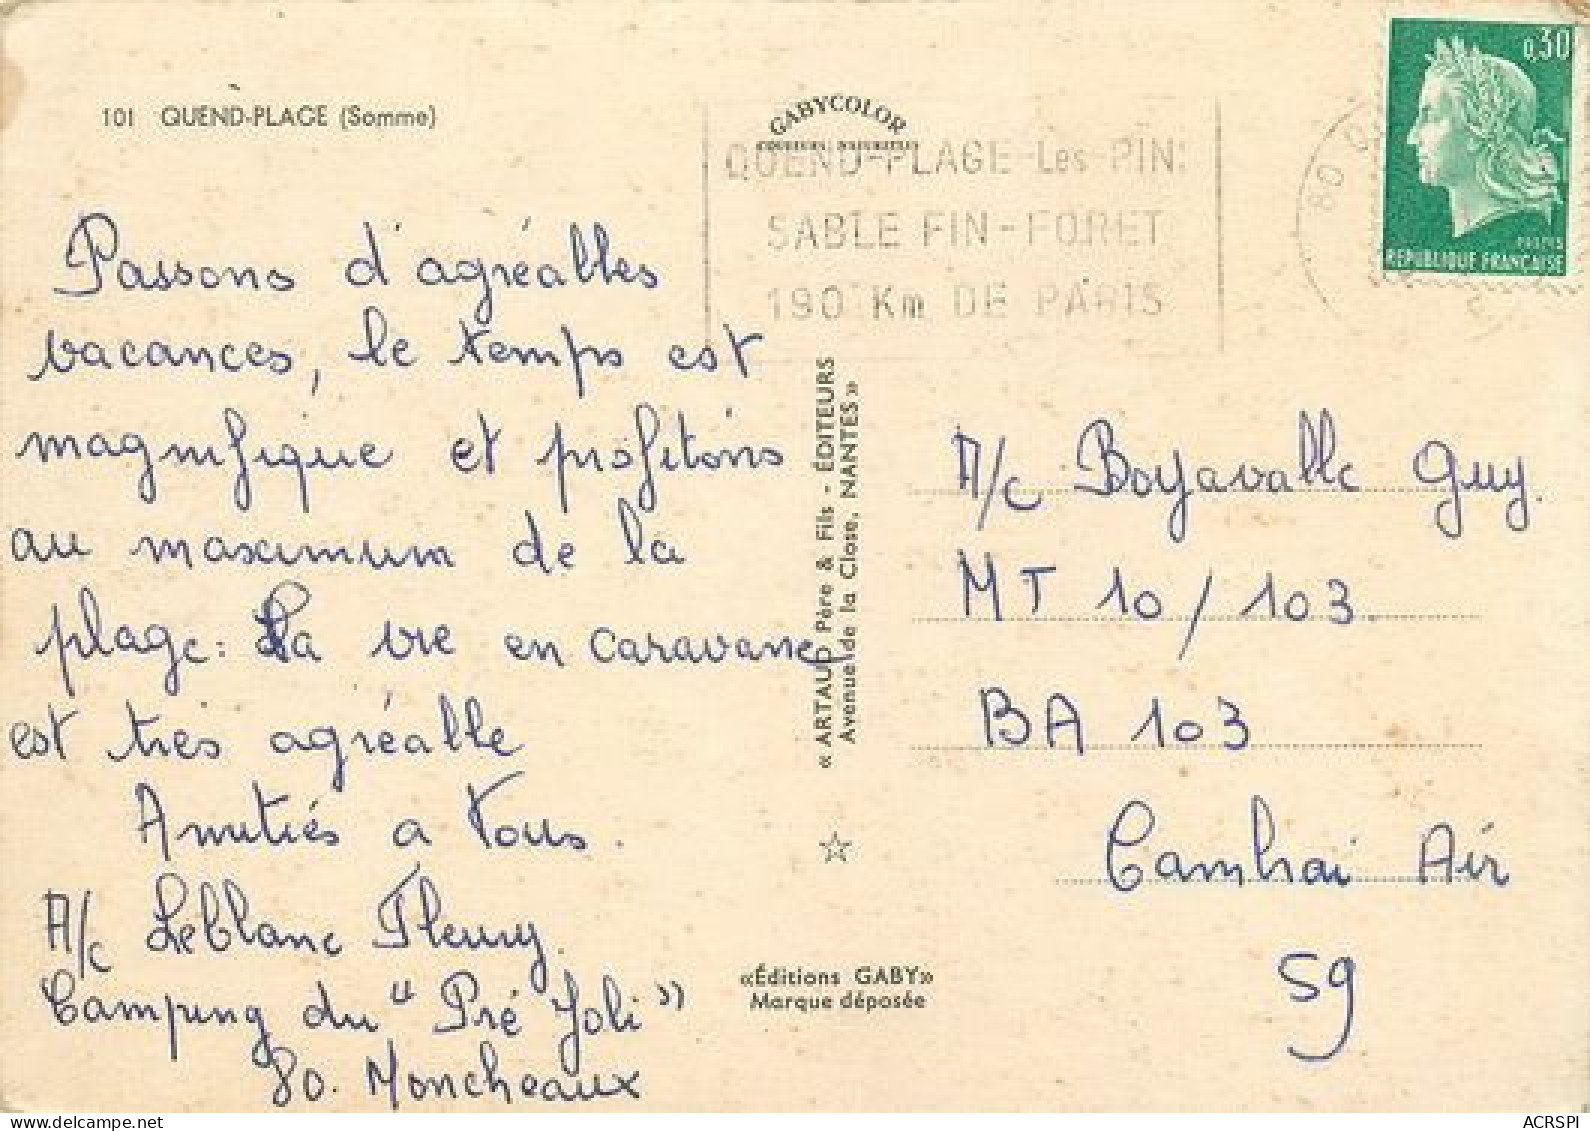 101 QUEND-PLAGE (Somme)
GABYCOLOR
COULEURS NATURELLES
QUEND-PLAGE-Les-PINS
SABLE FIN-FORET
190 Km DE PARIS
80
0,30
POSTES
REPUBLIQUE FRANÇAISE
Passons d'agréables
vacances, le temps est
magnifique et profitons
au maximum de la
plage. La vie en caravane
est très agréable
Amitiés à tous.
A/c Leblanc Fleury.
Camping du "Pré Joli"
80. Moncheaux
« ARTAUD Père & Fils - ÉDITEURS
Avenue de la Close, NANTES »
«Éditions GABY»
Marque déposée
A/c Boyavalle Guy.
MT 10/103.
BA 103
Cambrai Air
59
delcampe.net
ACRSPI